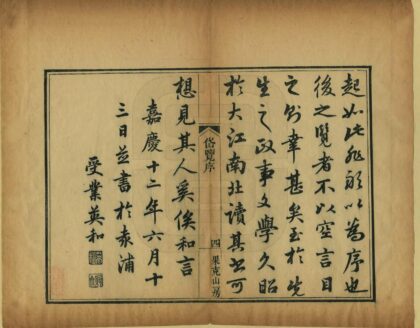 起如此非敢以為序也
後之覽者不以空言目
之則幸甚矣至於先
生之政事文學久昭
於大江南北讀其書可
岱覽序
四
果克山房
想見其人奚俟和言
嘉慶十二年六月十
三日並書於袁浦
受業英和